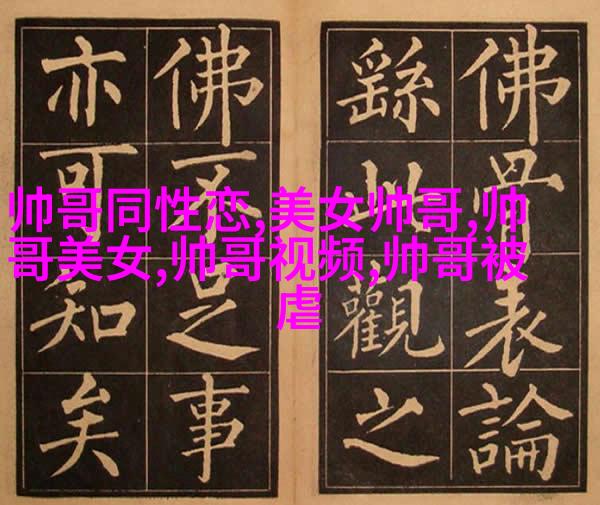 佛骨表論
繇此觀之
佛不足事
亦可知矣
帅哥同性恋,美女帅哥,帅
哥美女,帅哥视频,帅哥被
虐